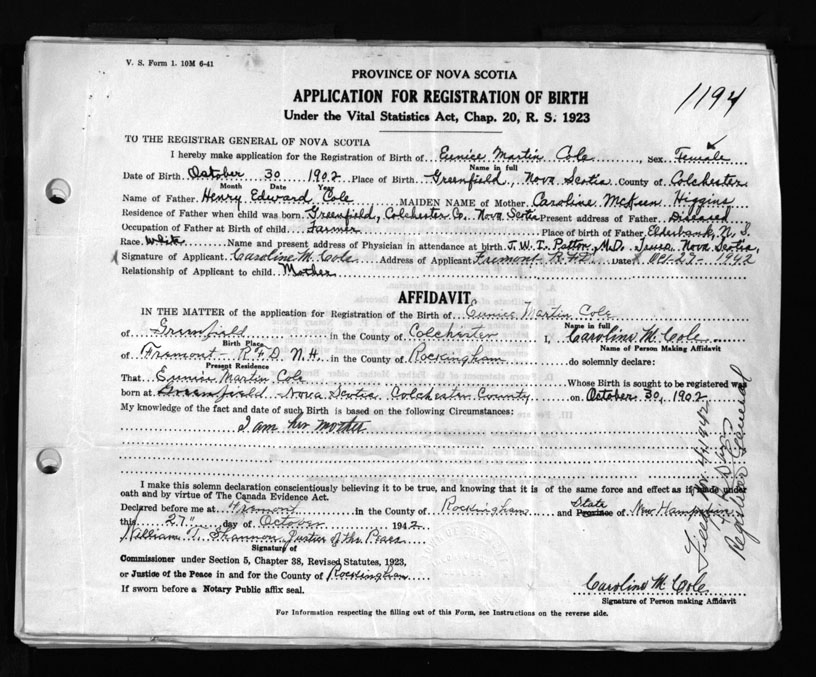 V. S. Form 1. 10M 6-41
1194
PROVINCE OF NOVA SCOTIA
APPLICATION FOR REGISTRATION OF BIRTH
Under the Vital Statistics Act, Chap. 20, R. S. 1923
TO THE REGISTRAR GENERAL OF NOVA SCOTIA
I hereby make application for the Registration of Birth of Eunice Martin Cole, Sex Female
Name in full
Date of Birth October 30 1902 Place of Birth Greenfield, Nova Scotia County of Colchester
Month Date Year
Name of Father Henry Edward Cole MAIDEN NAME of Mother Caroline McKeen Higgins
Residence of Father when child was born Greenfield, Colchester Co. Nova Scotia Present address of Father
Occupation of Father at Birth of child Farmer Place of birth of Father Elderbank, N. S.
Race White Name and present address of Physician in attendance at birth Patton, M.D. Truro Nova Scotia
Signature of Applicant Caroline M. Cole Address of Applicant Fremont R.F.D. Date Oct-27-1942
Relationship of Applicant to child Mother
AFFIDAVIT
IN THE MATTER of the application for Registration of the Birth of Eunice Martin Cole
Name in full
of Greenfield in the County of Colchester I, Caroline M. Cole
Birth Place Name of Person Making Affidavit
of Fremont R.F.D. N.H. in the County of Rockingham do solemnly declare:
Present Residence
That Eunice Martin Cole Whose Birth is sought to be registered was
born at Greenfield Nova Scotia, Colchester County on October 30, 1902
My knowledge of the fact and date of such Birth is based on the following Circumstances:
I am her mother
I make this solemn declaration conscientiously believing it to be true, and knowing that it is of the same force and effect as if made under
oath and by virtue of The Canada Evidence Act.
State
Declared before me at Fremont in the County of Rockingham and Province of New Hampshire
this 27" day of October 1942
William Shannon Justice of the Peace
Signature of
Commissioner under Section 5, Chapter 38, Revised Statutes, 1923,
or Justice of the Peace in and for the County of Rockingham
If sworn before a Notary Public affix seal.
Caroline M. Cole
Signature of Person making Affidavit
For Information respecting the filling out of this Form, see Instructions on the reverse side.
Filed 1942
Registrar General